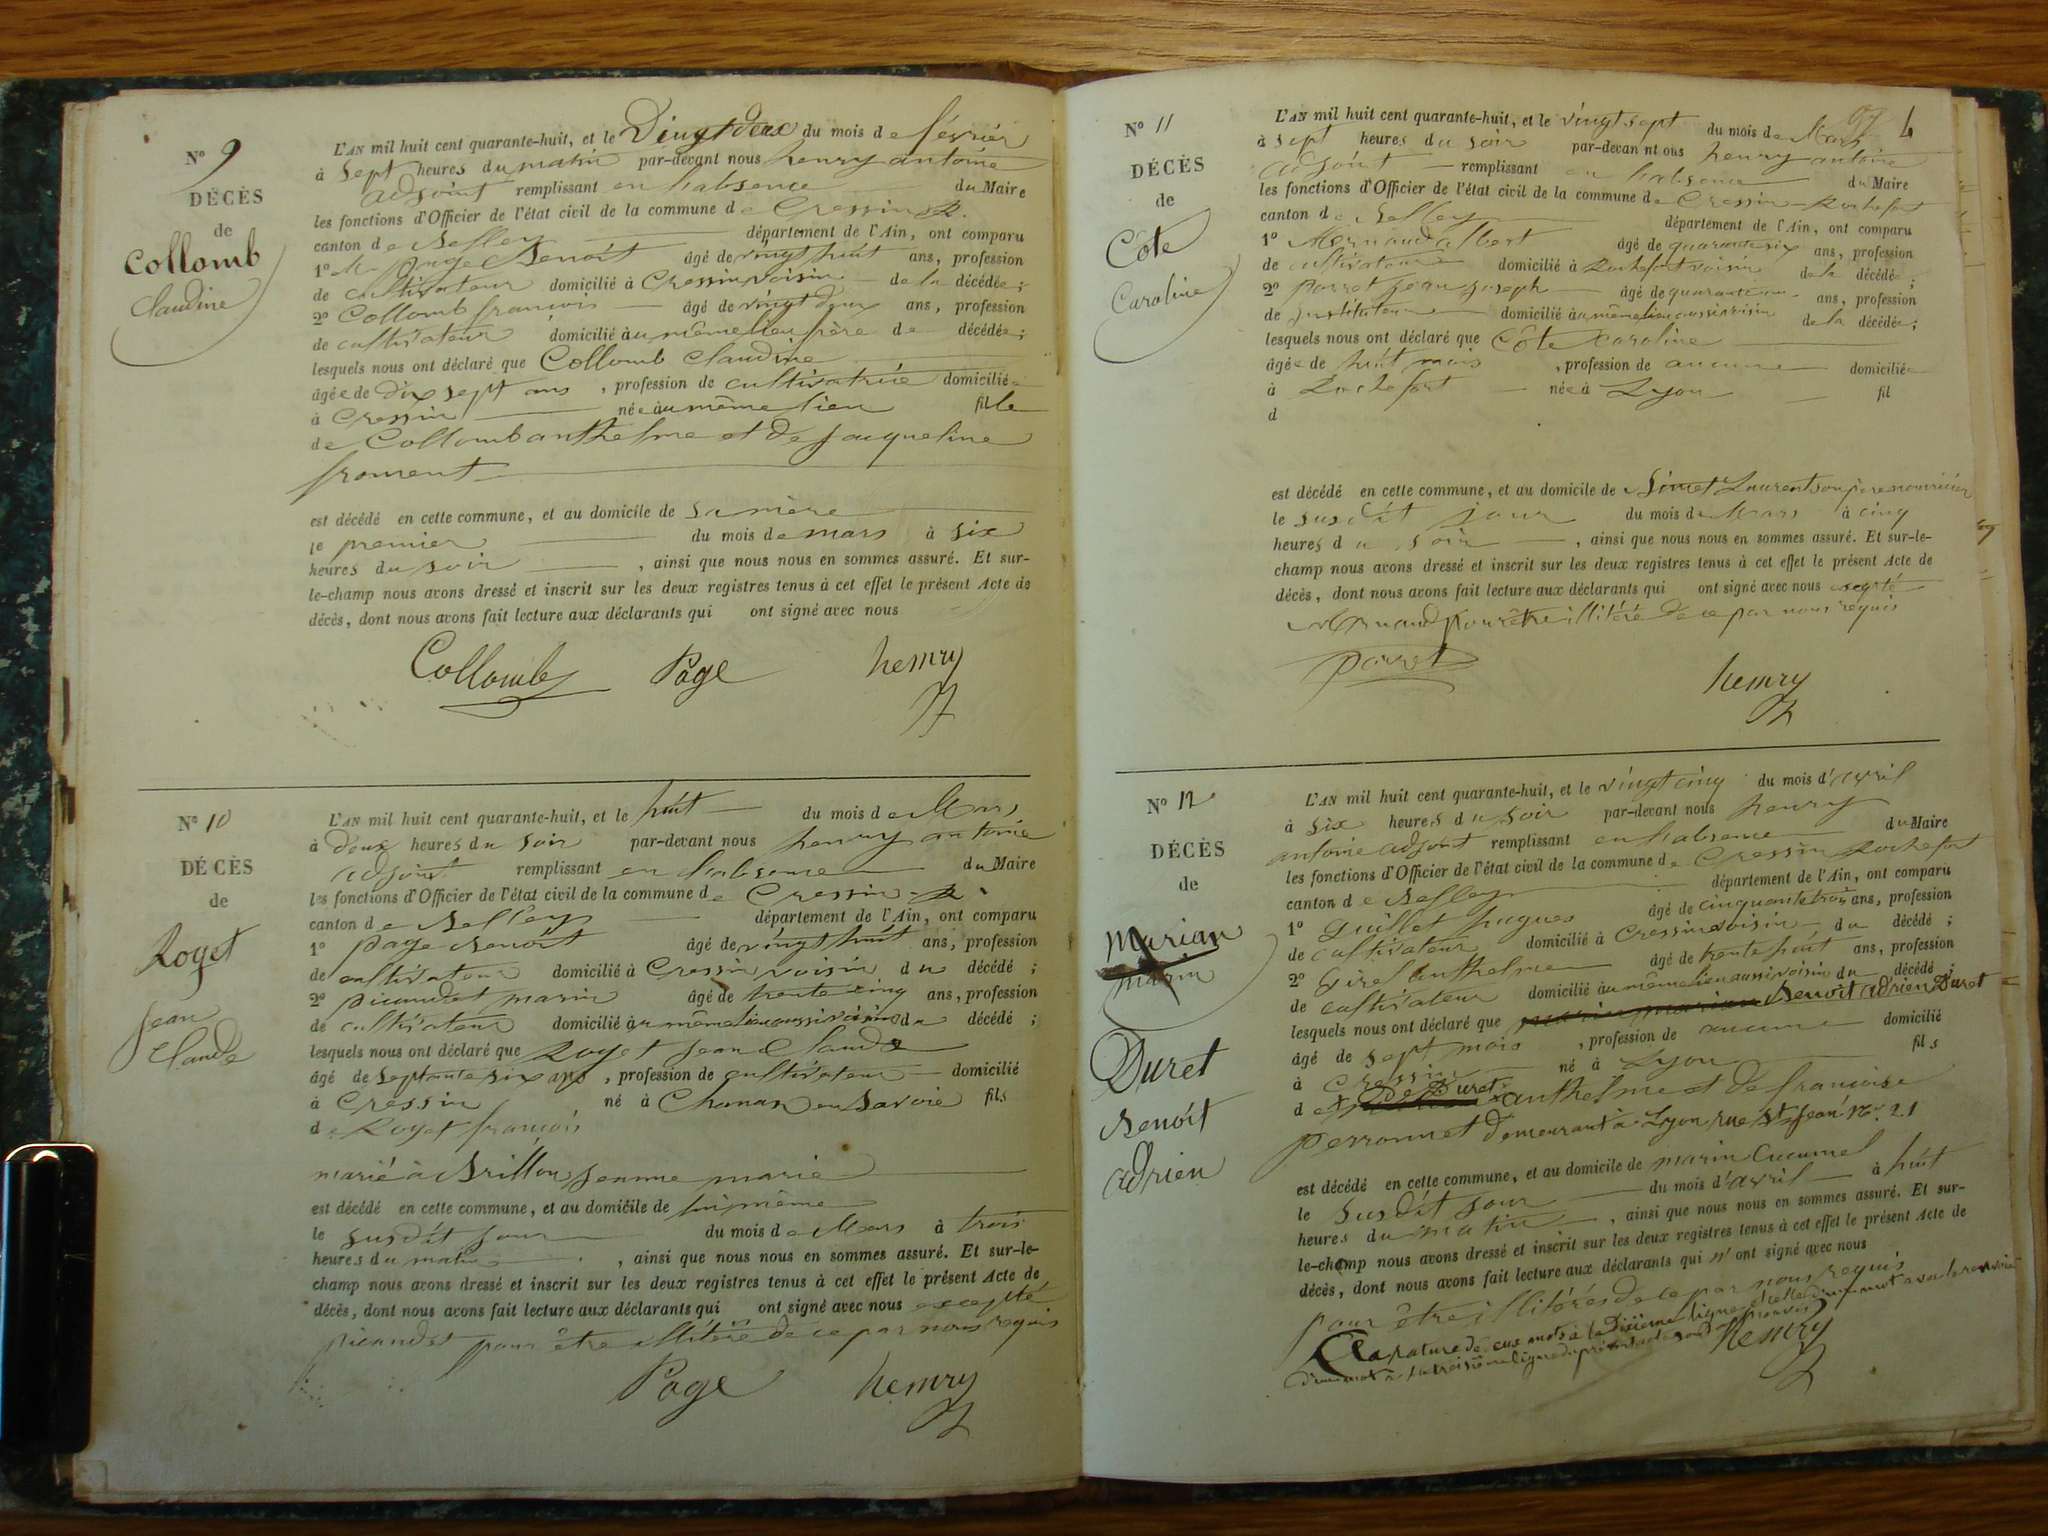 N° 9
DÉCÈS
de
Collomb
Claudine
L'AN mil huit cent quarante-huit, et le Vingt deux du mois de février
à Sept heures du matin par-devant nous henry antoine
adjoint remplissant en l'absence du Maire
les fonctions d'Officier de l'état civil de la commune de Cressin R.
canton de Belley département de l'Ain, ont comparu
1° page Benoit âgé de vingt huit ans, profession
de cultivateur domicilié à Cressin voisin de la décédée ;
2° Collomb françois âgé de vingt deux ans, profession
de cultivateur domicilié au même lieu frère de décédée ;
lesquels nous ont déclaré que Collomb Claudine
âgée de dix sept ans , profession de cultivatrice domiciliée
à Cressin née au même lieu fille
de Collomb anthelme et de jacqueline
froment
est décédé en cette commune, et au domicile de sa mère
le premier du mois de mars à six
heures du soir , ainsi que nous nous en sommes assuré. Et sur-
le-champ nous avons dressé et inscrit sur les deux registres tenus à cet effet le présent Acte de
décès, dont nous avons fait lecture aux déclarants qui ont signé avec nous
Collomb Page henry
N° 10
DÉCÈS
de
Royet
jean
Claude
L'AN mil huit cent quarante-huit, et le huit du mois de Mars
à deux heures du soir par-devant nous henry antoine
adjoint remplissant en l'absence du Maire
les fonctions d'Officier de l'état civil de la commune de Cressin R.
canton de Belley département de l'Ain, ont comparu
1° page Benoit âgé de vingt huit ans, profession
de cultivateur domicilié à Cressin voisin du décédé ;
2° picandet marin âgé de trente cinq ans, profession
de cultivateur domicilié au même lieu aussi voisin du décédé ;
lesquels nous ont déclaré que Royet jean Claude
âgé de septante six ans , profession de cultivateur domicilié
à Cressin né à Chanas en Savoie fils
de Royet françois
marié à Brillon jeanne marie
est décédé en cette commune, et au domicile de lui même
le susdit jour du mois de Mars à trois
heures du matin , ainsi que nous nous en sommes assuré. Et sur-le-
champ nous avons dressé et inscrit sur les deux registres tenus à cet effet le présent Acte de
décès, dont nous avons fait lecture aux déclarants qui ont signé avec nous excepté
picandet pour être illitéré de ce par nous requis
Page henry
4
N° 11
DÉCÈS
de
Côte
Caroline
L'AN mil huit cent quarante-huit, et le vingt sept du mois de Mars
à sept heures du soir par-devant nous henry antoine
adjoint remplissant en l'absence du Maire
les fonctions d'Officier de l'état civil de la commune de Cressin Rochefort
canton de Belley département de l'Ain, ont comparu
1° albert âgé de quarante six ans, profession
de cultivateur domicilié à Rochefort voisin de la décédée ;
2° porret jean joseph âgé de quarante ans, profession
de instituteur domicilié au même lieu aussi voisin de la décédée ;
lesquels nous ont déclaré que Côte Caroline
âgée de huit mois , profession de aucune domiciliée
à Rochefort née à Lyon fil
d
est décédé en cette commune, et au domicile de Laurent son père nourricier
le susdit jour du mois de Mars à cinq
heures du soir , ainsi que nous nous en sommes assuré. Et sur-le-
champ nous avons dressé et inscrit sur les deux registres tenus à cet effet le présent Acte de
décès, dont nous avons fait lecture aux déclarants qui ont signé avec nous excepté
pour être illitéré de ce par nous requis
porret henry
N° 12
DÉCÈS
de
Marian
marin
Duret
Benoit
adrien
L'AN mil huit cent quarante-huit, et le vingt cinq du mois d'avril
à six heures du soir par-devant nous henry
antoine adjoint remplissant en l'absence du Maire
les fonctions d'Officier de l'état civil de la commune de Cressin Rochefort
canton de Belley département de l'Ain, ont comparu
1° Guillet hugues âgé de cinquante trois ans, profession
de cultivateur domicilié à Cressin voisin du décédé ;
2° Girel anthelme âgé de trente huit ans, profession
de cultivateur domicilié au même lieu aussi voisin du décédé ;
lesquels nous ont déclaré que Benoit adrien Duret
âgé de sept mois , profession de aucune domicilié
à Cressin né à Lyon fils
de Duret anthelme et de françoise
perronnet demeurant à Lyon rue St jean N° 21
est décédé en cette commune, et au domicile de marin Cucumel
le susdit jour du mois d'avril à huit
heures du matin , ainsi que nous nous en sommes assuré. Et sur-
le-champ nous avons dressé et inscrit sur les deux registres tenus à cet effet le présent Acte de
décès, dont nous avons fait lecture aux déclarants qui n'ont signé avec nous
pour être illitérés de ce par nous requis
La rature de mots à la dixième ligne et celle d'un mot
d'un mot à la treizième ligne du présent acte sont approuvés
henry